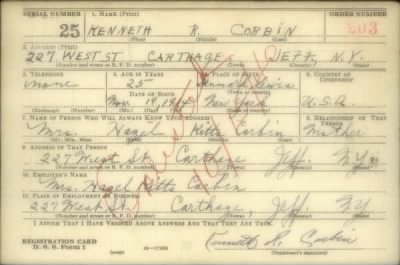 SERIAL NUMBER 1. NAME (Print) ORDER NUMBER
25 KENNETH R. CORBIN
(First) (Middle) (Last)
2. ADDRESS (Print)
227 WEST ST CARTHAGE JEFF. N.Y.
(Number and street or R. F. D. number) (Town) (County) (State)
3. TELEPHONE 4. AGE IN YEARS 5. PLACE OF BIRTH 6. COUNTRY OF CITIZENSHIP
none 25 Lewis
DATE OF BIRTH
Nov 19, New York U.S.A.
(Exchange) (Number) (Mo.) (Day) (Yr.) (State or country)
7. NAME OF PERSON WHO WILL ALWAYS KNOW YOUR ADDRESS 8. RELATIONSHIP OF THAT PERSON
Mrs. Hazel Kitts Corbin Mother
(Mr., Mrs., Miss) (First) (Middle) (Last)
9. ADDRESS OF THAT PERSON
227 West St. Carthage Jeff. N.Y.
(Number and street or R. F. D. number) (Town) (County) (State)
10. EMPLOYER'S NAME
Mrs. Hazel Kitts Corbin
11. PLACE OF EMPLOYMENT OR BUSINESS
227 West St. Carthage, Jeff. N.Y
(Number and street or R. F. D. number) (Town) (County) (State)
I AFFIRM THAT I HAVE VERIFIED ABOVE ANSWERS AND THAT THEY ARE TRUE.
REGISTRATION CARD
D. S. S. Form 1 (over) 16-17105 Kenneth R. Corbin
(Registrant's signature)